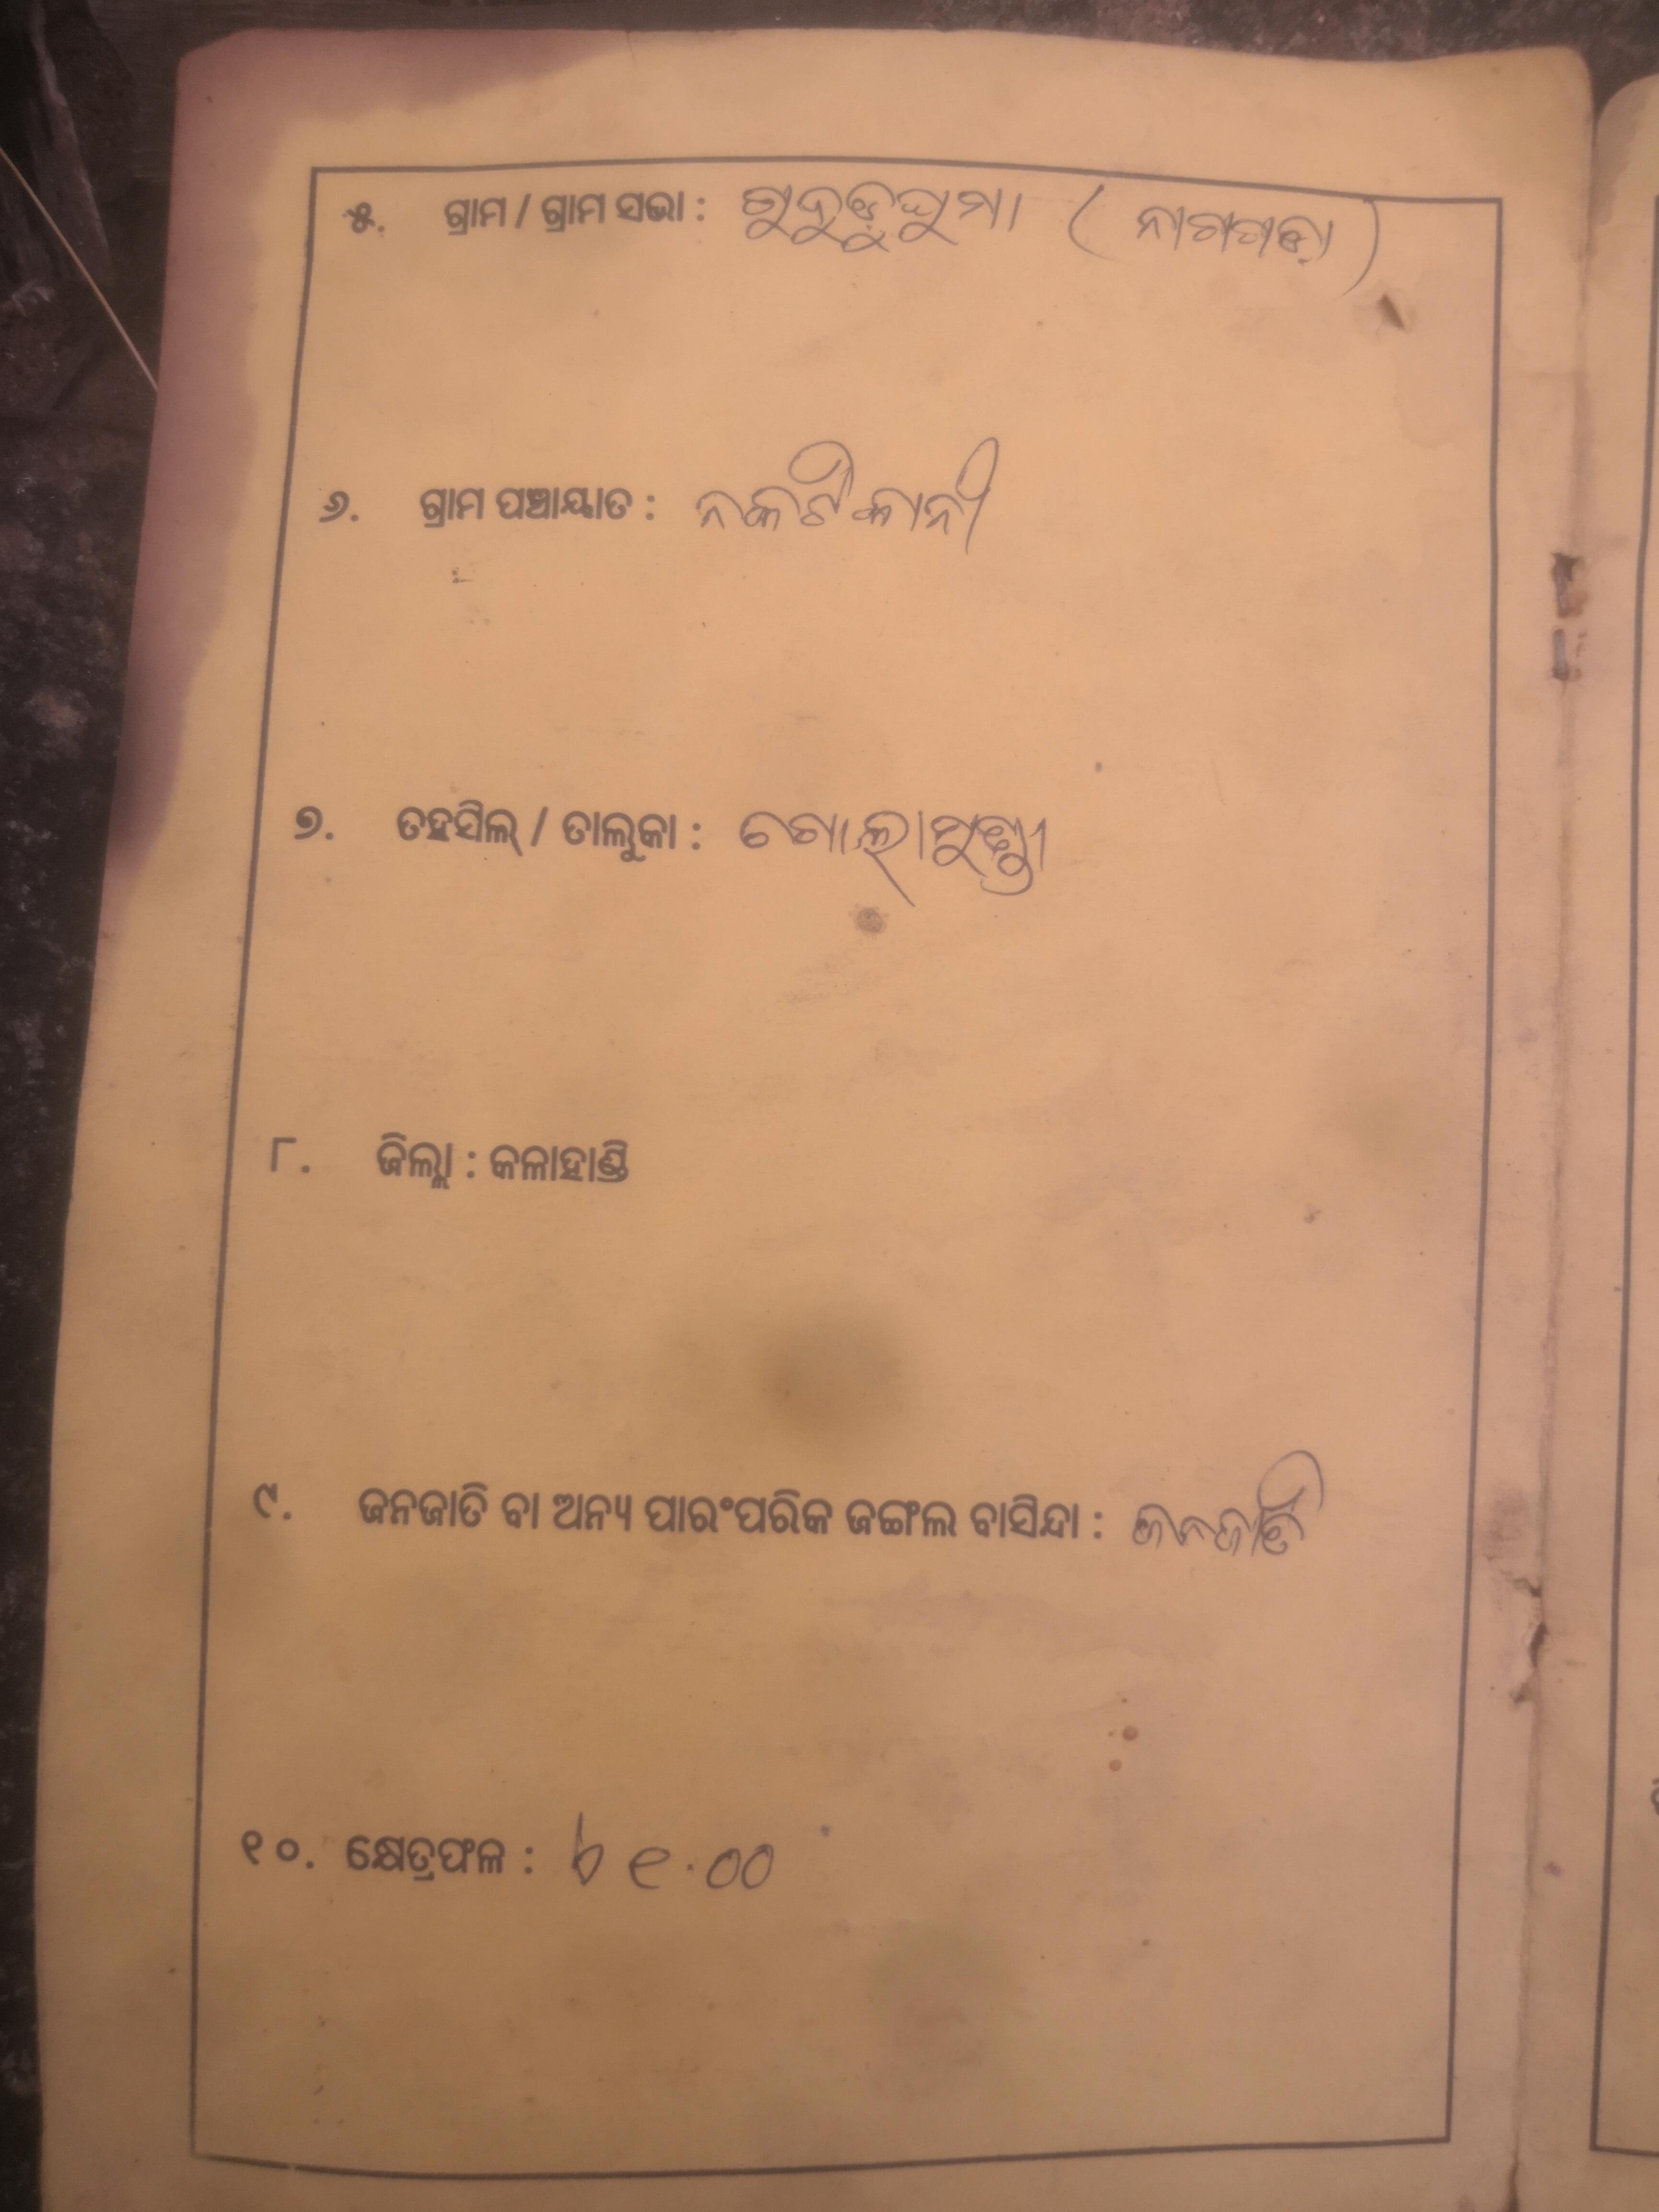 ୫. ଗ୍ରାମ / ଗ୍ରାମ ସଭା : ଗୁନୁଡୁଘୁମା ( ନୀଗାଗଡ଼ା )
୬. ଗ୍ରାମ ପଞ୍ଚାୟାତ : ନକଟିକାନୀ
୭. ତହସିଲ୍ / ତାଲୁକା : ଗୋଲାମୁଣ୍ଡା
୮. ଜିଲ୍ଲା : କଳାହାଣ୍ଡି
୯. ଜନଜାତି ବା ଅନ୍ୟ ପାରଂପରିକ ଜଙ୍ଗଲ ବାସିନ୍ଦା : ଜନଜାତି
୧୦. କ୍ଷେତ୍ରଫଳ :